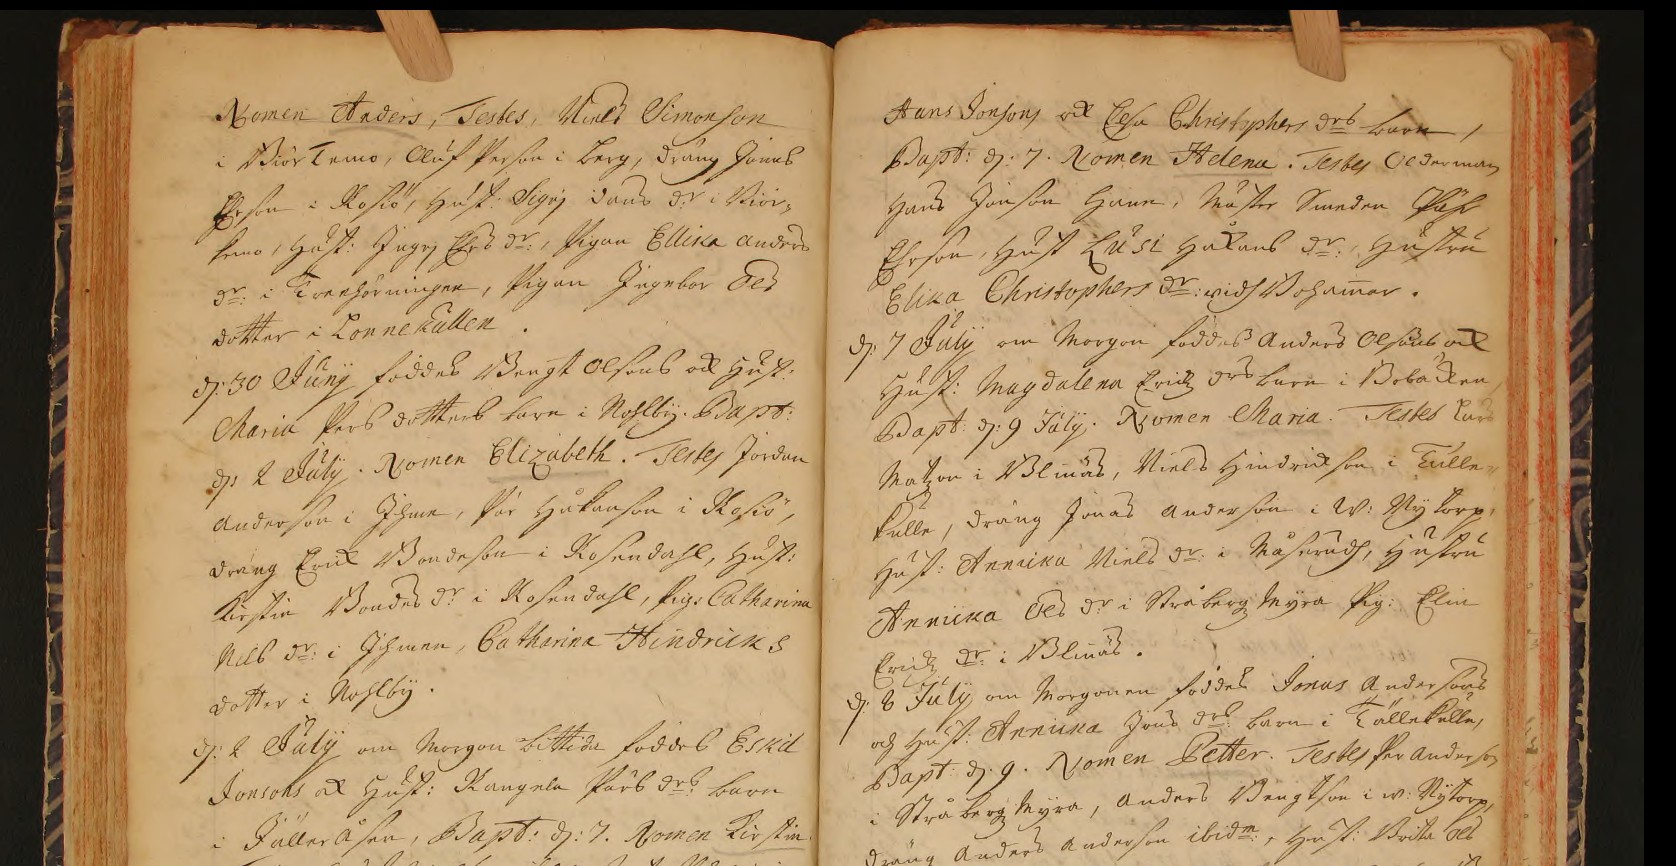 Nomen Anders, Testes, Niels Simonson
i Biörkemo, Oluf Person i Berg, dräng Jonas
Ehrson i Rosiö, Hust: Sigrj dans dr i Biör-
kemo, Hust: Ingrj Ehrs dr:, Pigan Ellika Anders
dr: i Trenhörningen, Pigan Ingebor Ols
dotter i Lonnekullen.
d: 30 Juny föddes Bengt Olsons ock Hust:
Maria Pers dotters barn i Nohlby. Bapt:
d: 2 July. Nomen Elizabeth. Testes Jordan
Anderson i Ihmen, Pär Håkanson i Rosiö,
dräng Erick Bondeson i Rosendahl, Hust:
Kirstin Bondes dr i Rosendahl, Pig: Catharina
Nils dr: i Ihmen, Catharina Hindricks
dotter i Nohlby.
d: 2 July om morgon bittida föddes Eskil
Jonsons ock Hust: Rangela Pärs drs barn
i Fälleråsen, Bapt: d: 7. Nomen Kirstin
Hans Jonsons ock Elsa Christophers drs barn,
Bapt: d: 7. Nomen Helena. Testes Olderman
Hans Jonson Hane, Mäster Smeden Pähr
Ehrson, Hust Lusi Håkans dr:, Hustru
Elika Christophers dr: vid Bohammar.
d: 7 July om Morgon föddes Anders Olsons ock
Hust: Magdalena Erichs drs barn i Bobäcken,
Bapt: d: 9 July. Nomen Maria. Testes Lars
Matzon i Blinäs, Niels Hindrickson i Källe-
kulle, dräng Jonas Anderson i W: Nytorp,
Hust: Annicka Niels dr: i Måserud, Hustru
Annicka Ols dr i Stråbergz Myra Pig: Elin
Erichs dr: i Blinäs.
d: 8 July om Morgonen föddes Jonas Andersons
och Hust: Annicka Jons drs: barn i Källekulle,
Bapt: d: 9. Nomen Petter. Testes Per Anderson
i Stråbergz Myra, Anders Bengtson i W: Nytorp,
dräng Anders Anderson ibidm:, Hust: Britta Ols